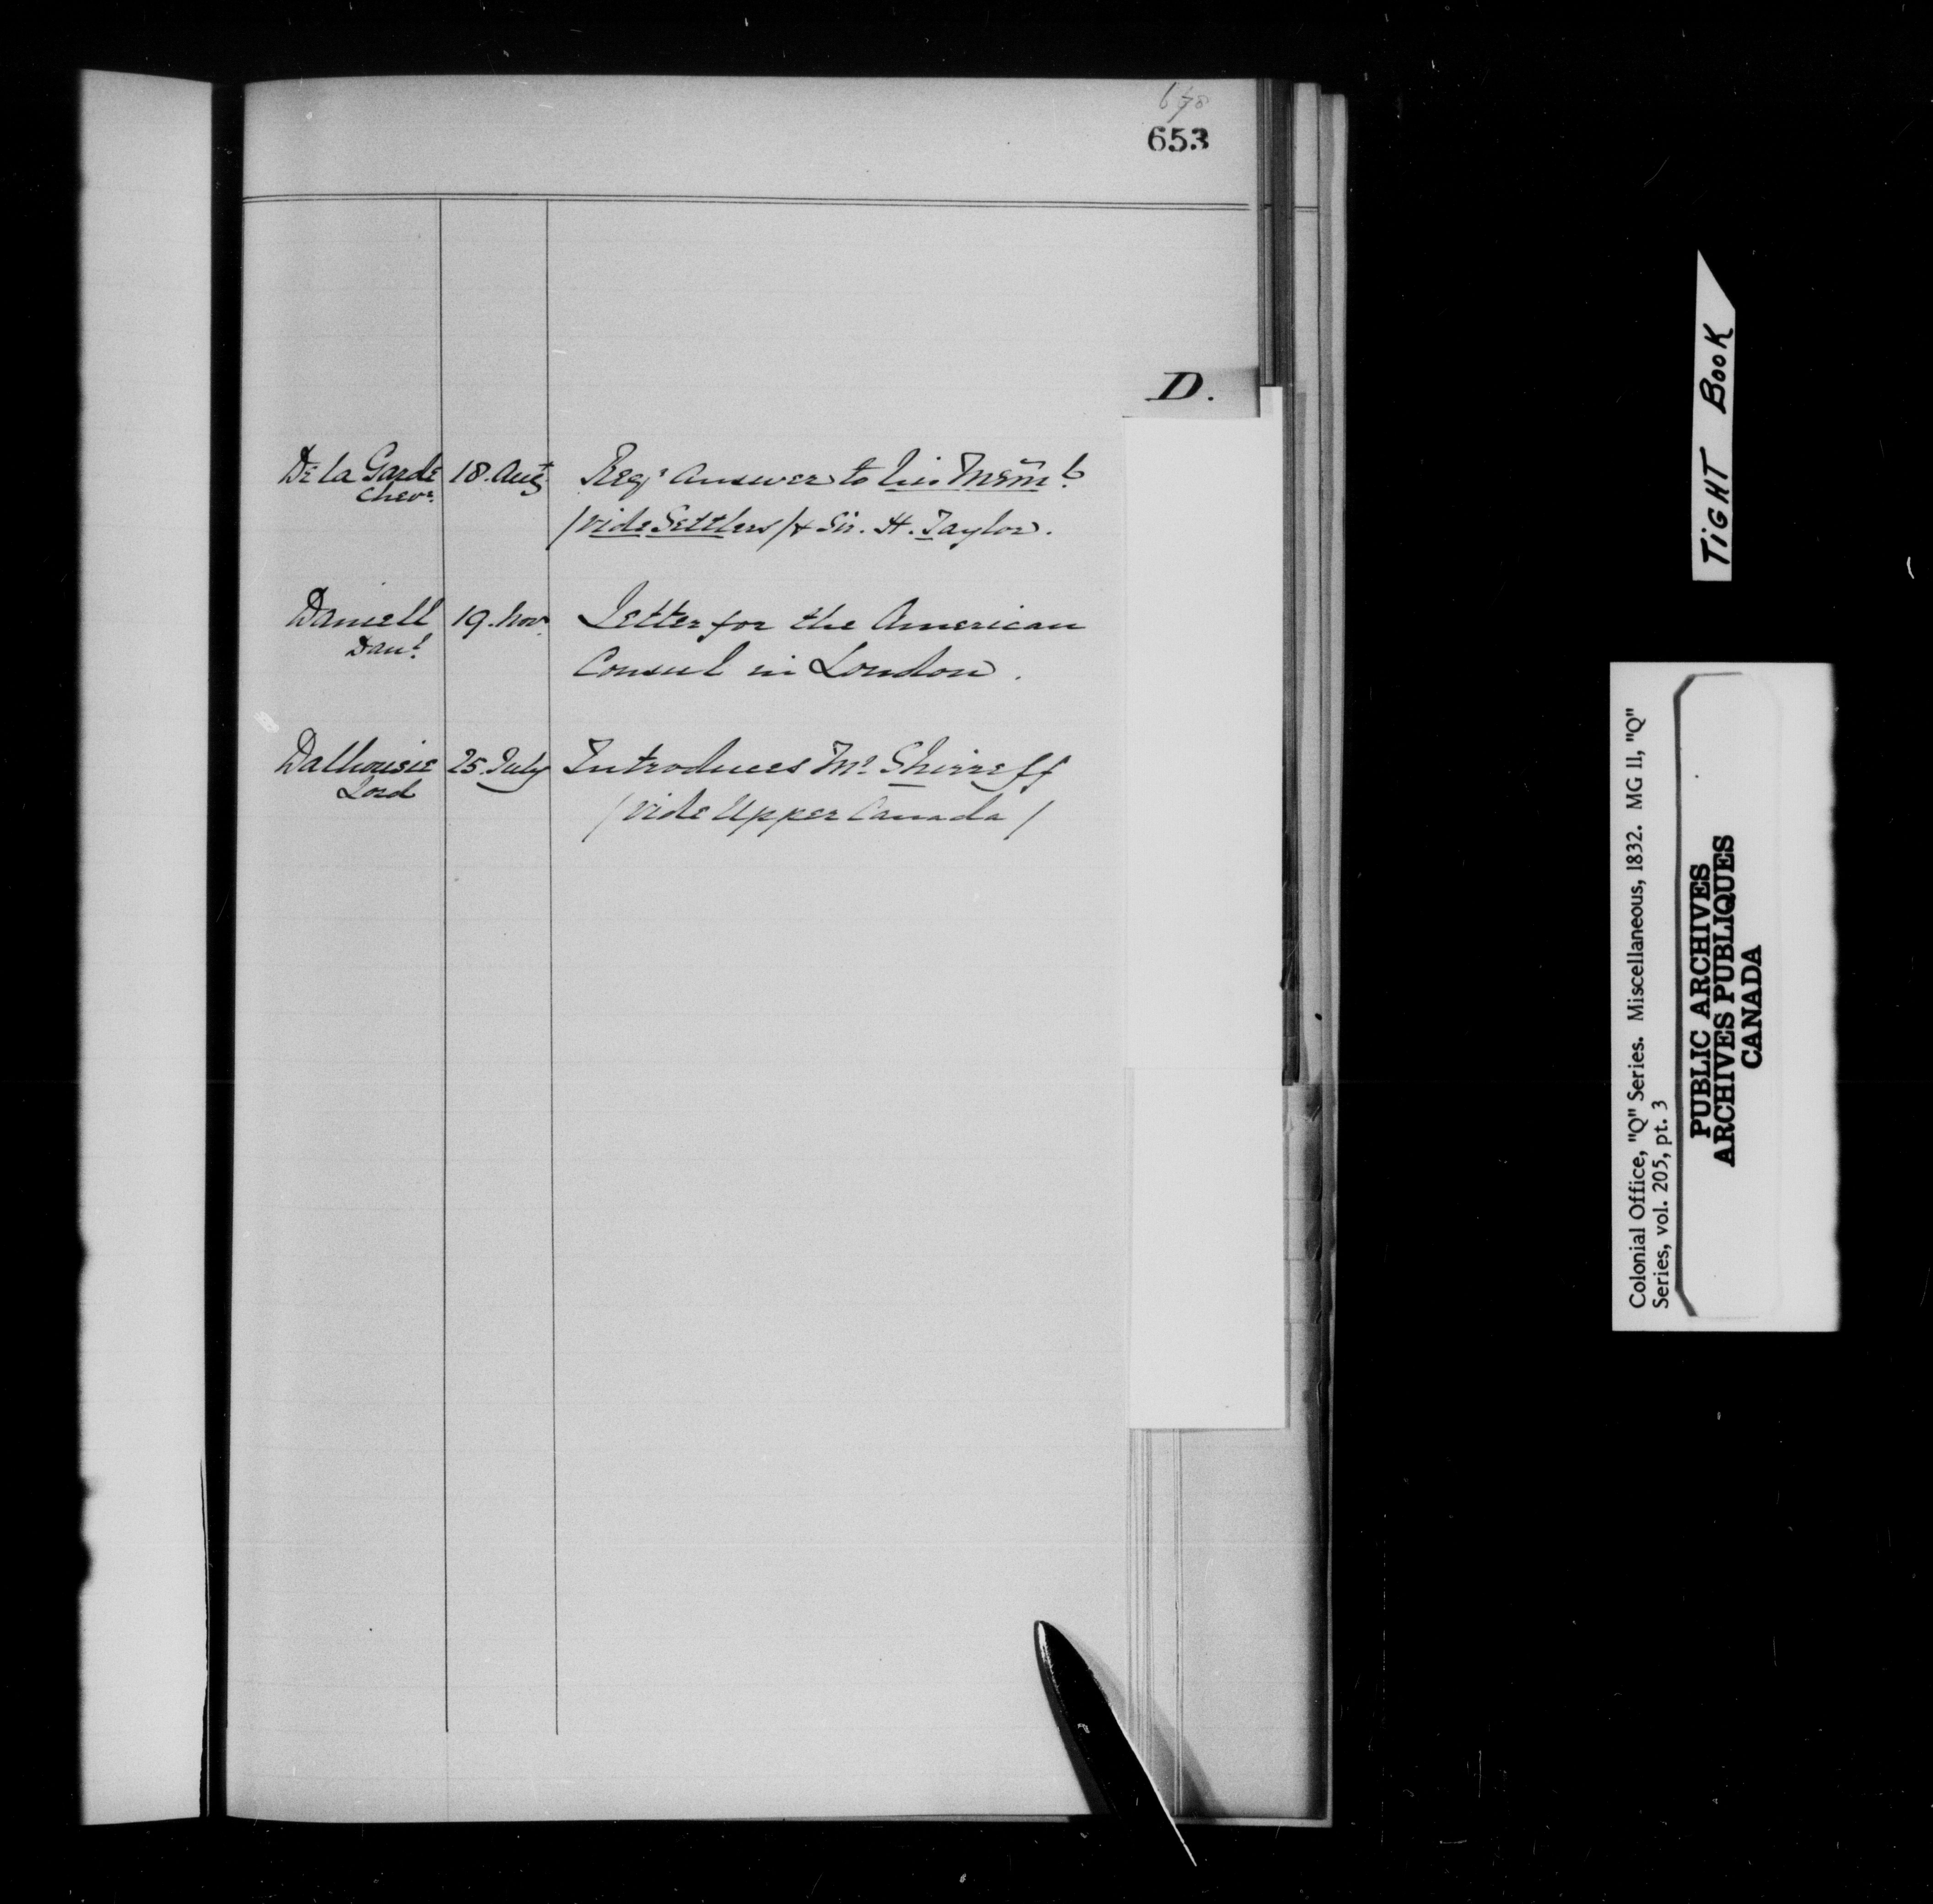 653
D.
De la Garde 18. Augt Reqs answer to his Meml
Chevr. /vide Settlers/ & Sir. H. Taylor.
Daniell 19. Novr. Letter for the American
Danl. Consul in London.
Dalhousie 25. July Introduces Mr. Shirreff
Lord /vide Upper Canada/
TIGHT BOOK
Colonial Office, "Q" Series. Miscellaneous, 1832. MG 11, "Q"
Series, vol. 205, pt. 3
PUBLIC ARCHIVES
ARCHIVES PUBLIQUES
CANADA